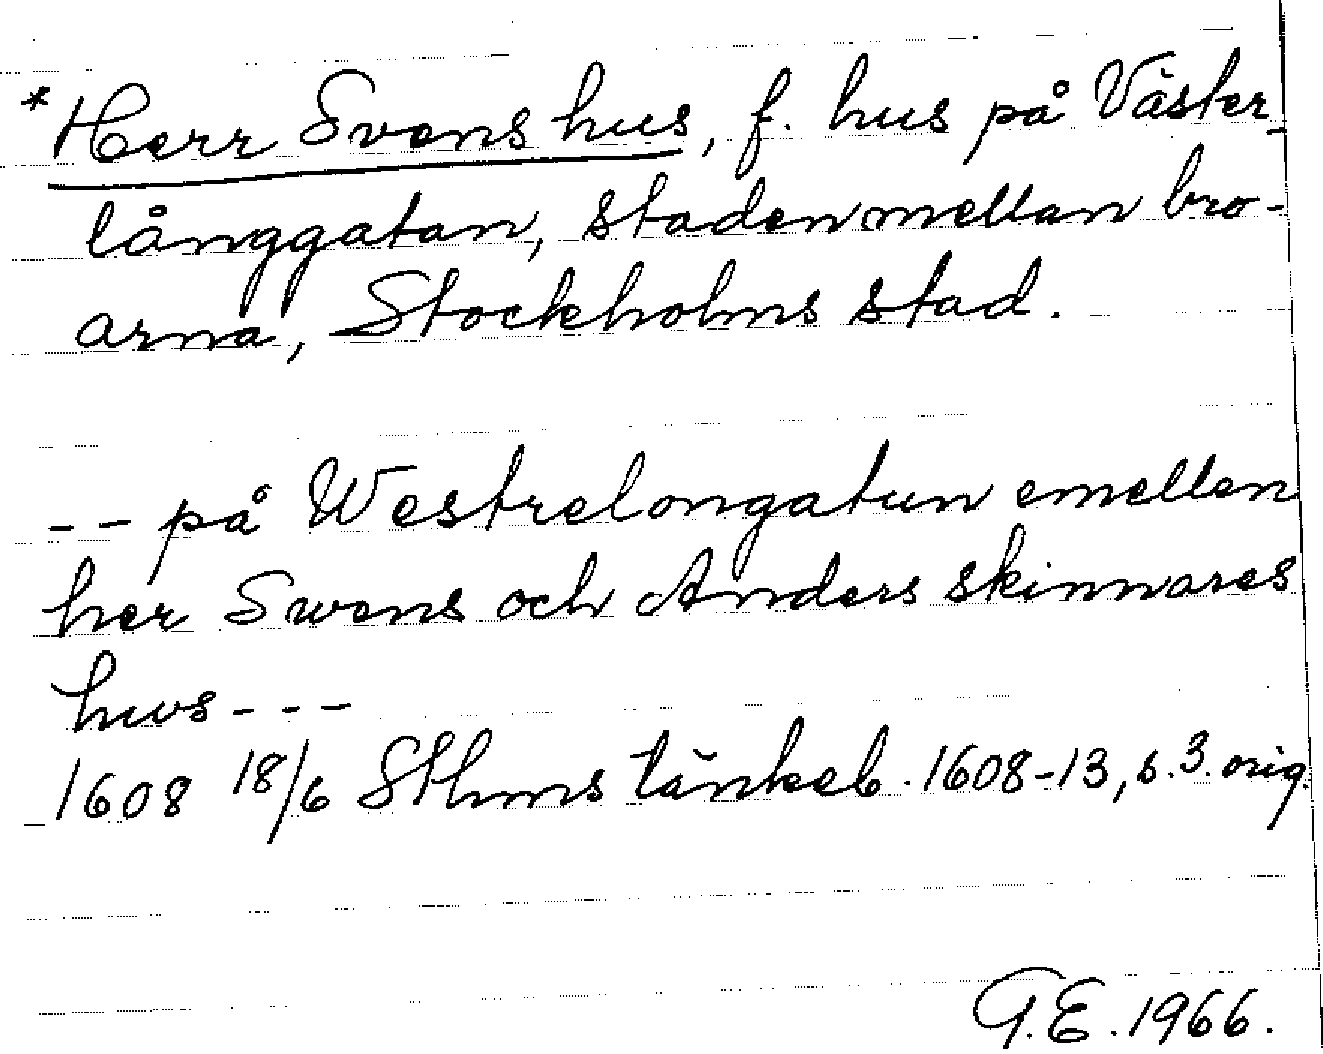 * Herr Svens hus, f. hus på Väster-
långgatan, staden mellan bro-
arna, Stockholms stad.
-- på Westrelongatun emellen
her Swens och Anders skinnares
hws ---
1608 18/6 Sthms tänkeb. 1608-13, s. 3. orig.
G.E. 1966.